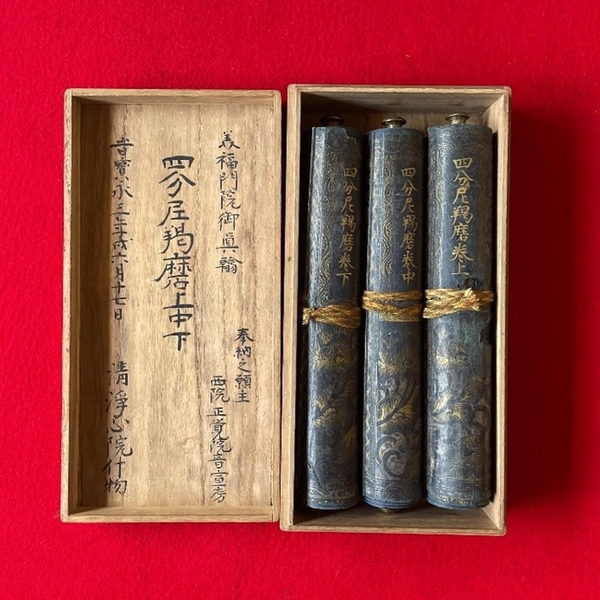 美福門院御眞翰
四分尼羯磨上中下
奉納之願主
西院正覚院音宣房
旹寳永三丙戌六月十七日
清淨心院什物
四分尼羯磨巻上
四分尼羯磨巻中
四分尼羯磨巻下